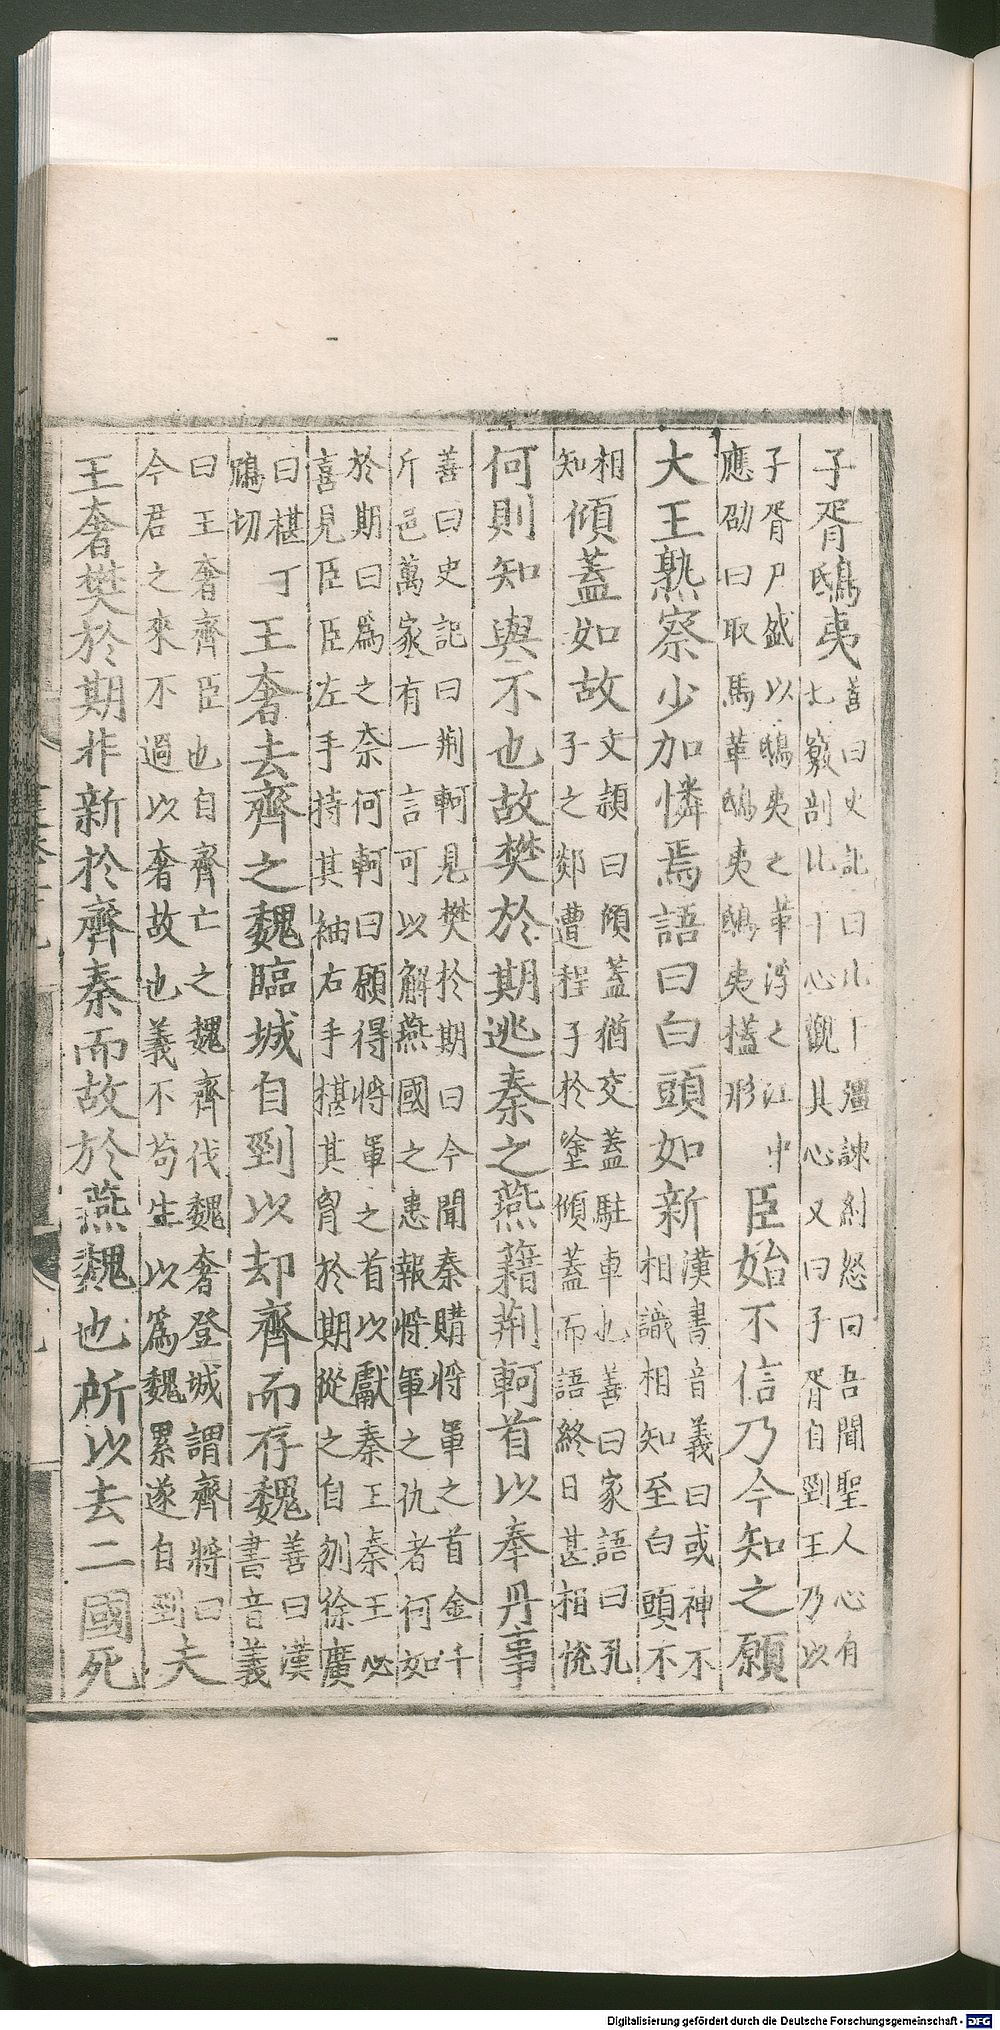 子胥鴟夷善曰史記曰比干彊諫紂怒曰吾聞聖人心有
七竅剖比干心觀其心又曰子胥自剄王乃以
子胥尸盛以鴟夷之革浮之江中
應劭曰取馬革鴟夷鴟夷榼形臣始不信乃今知之願
大王熟察少加憐焉語曰白頭如新漢書音義曰或神不
相識相知至白頭不
相
知傾蓋如故文穎曰傾蓋猶交蓋駐車也善曰家語曰孔
子之郯遭程子於塗傾蓋而語終日甚相悅
何則知與不也故樊於期逃秦之燕籍荆軻首以奉丹事
善曰史記曰荆軻見樊於期曰今聞秦購將軍之首金千
斤邑萬家有一言可以解燕國之患報將軍之仇者何如
於期曰爲之柰何軻曰願得將軍之首以獻秦王秦王必
喜見臣臣左手持其袖右手揕其胷於期從之自刎徐廣
曰揕丁
鴆切王奢去齊之魏臨城自剄以却齊而存魏善曰漢
書音義
曰王奢齊臣也自齊亡之魏齊伐魏奢登城謂齊將曰
今君之來不過以奢故也義不苟生以爲魏累遂自剄夫
王奢樊於期非新於齊秦而故於燕魏也所以去二國死
Digitalisierung gefördert durch die Deutsche Forschungsgemeinschaft - DFG